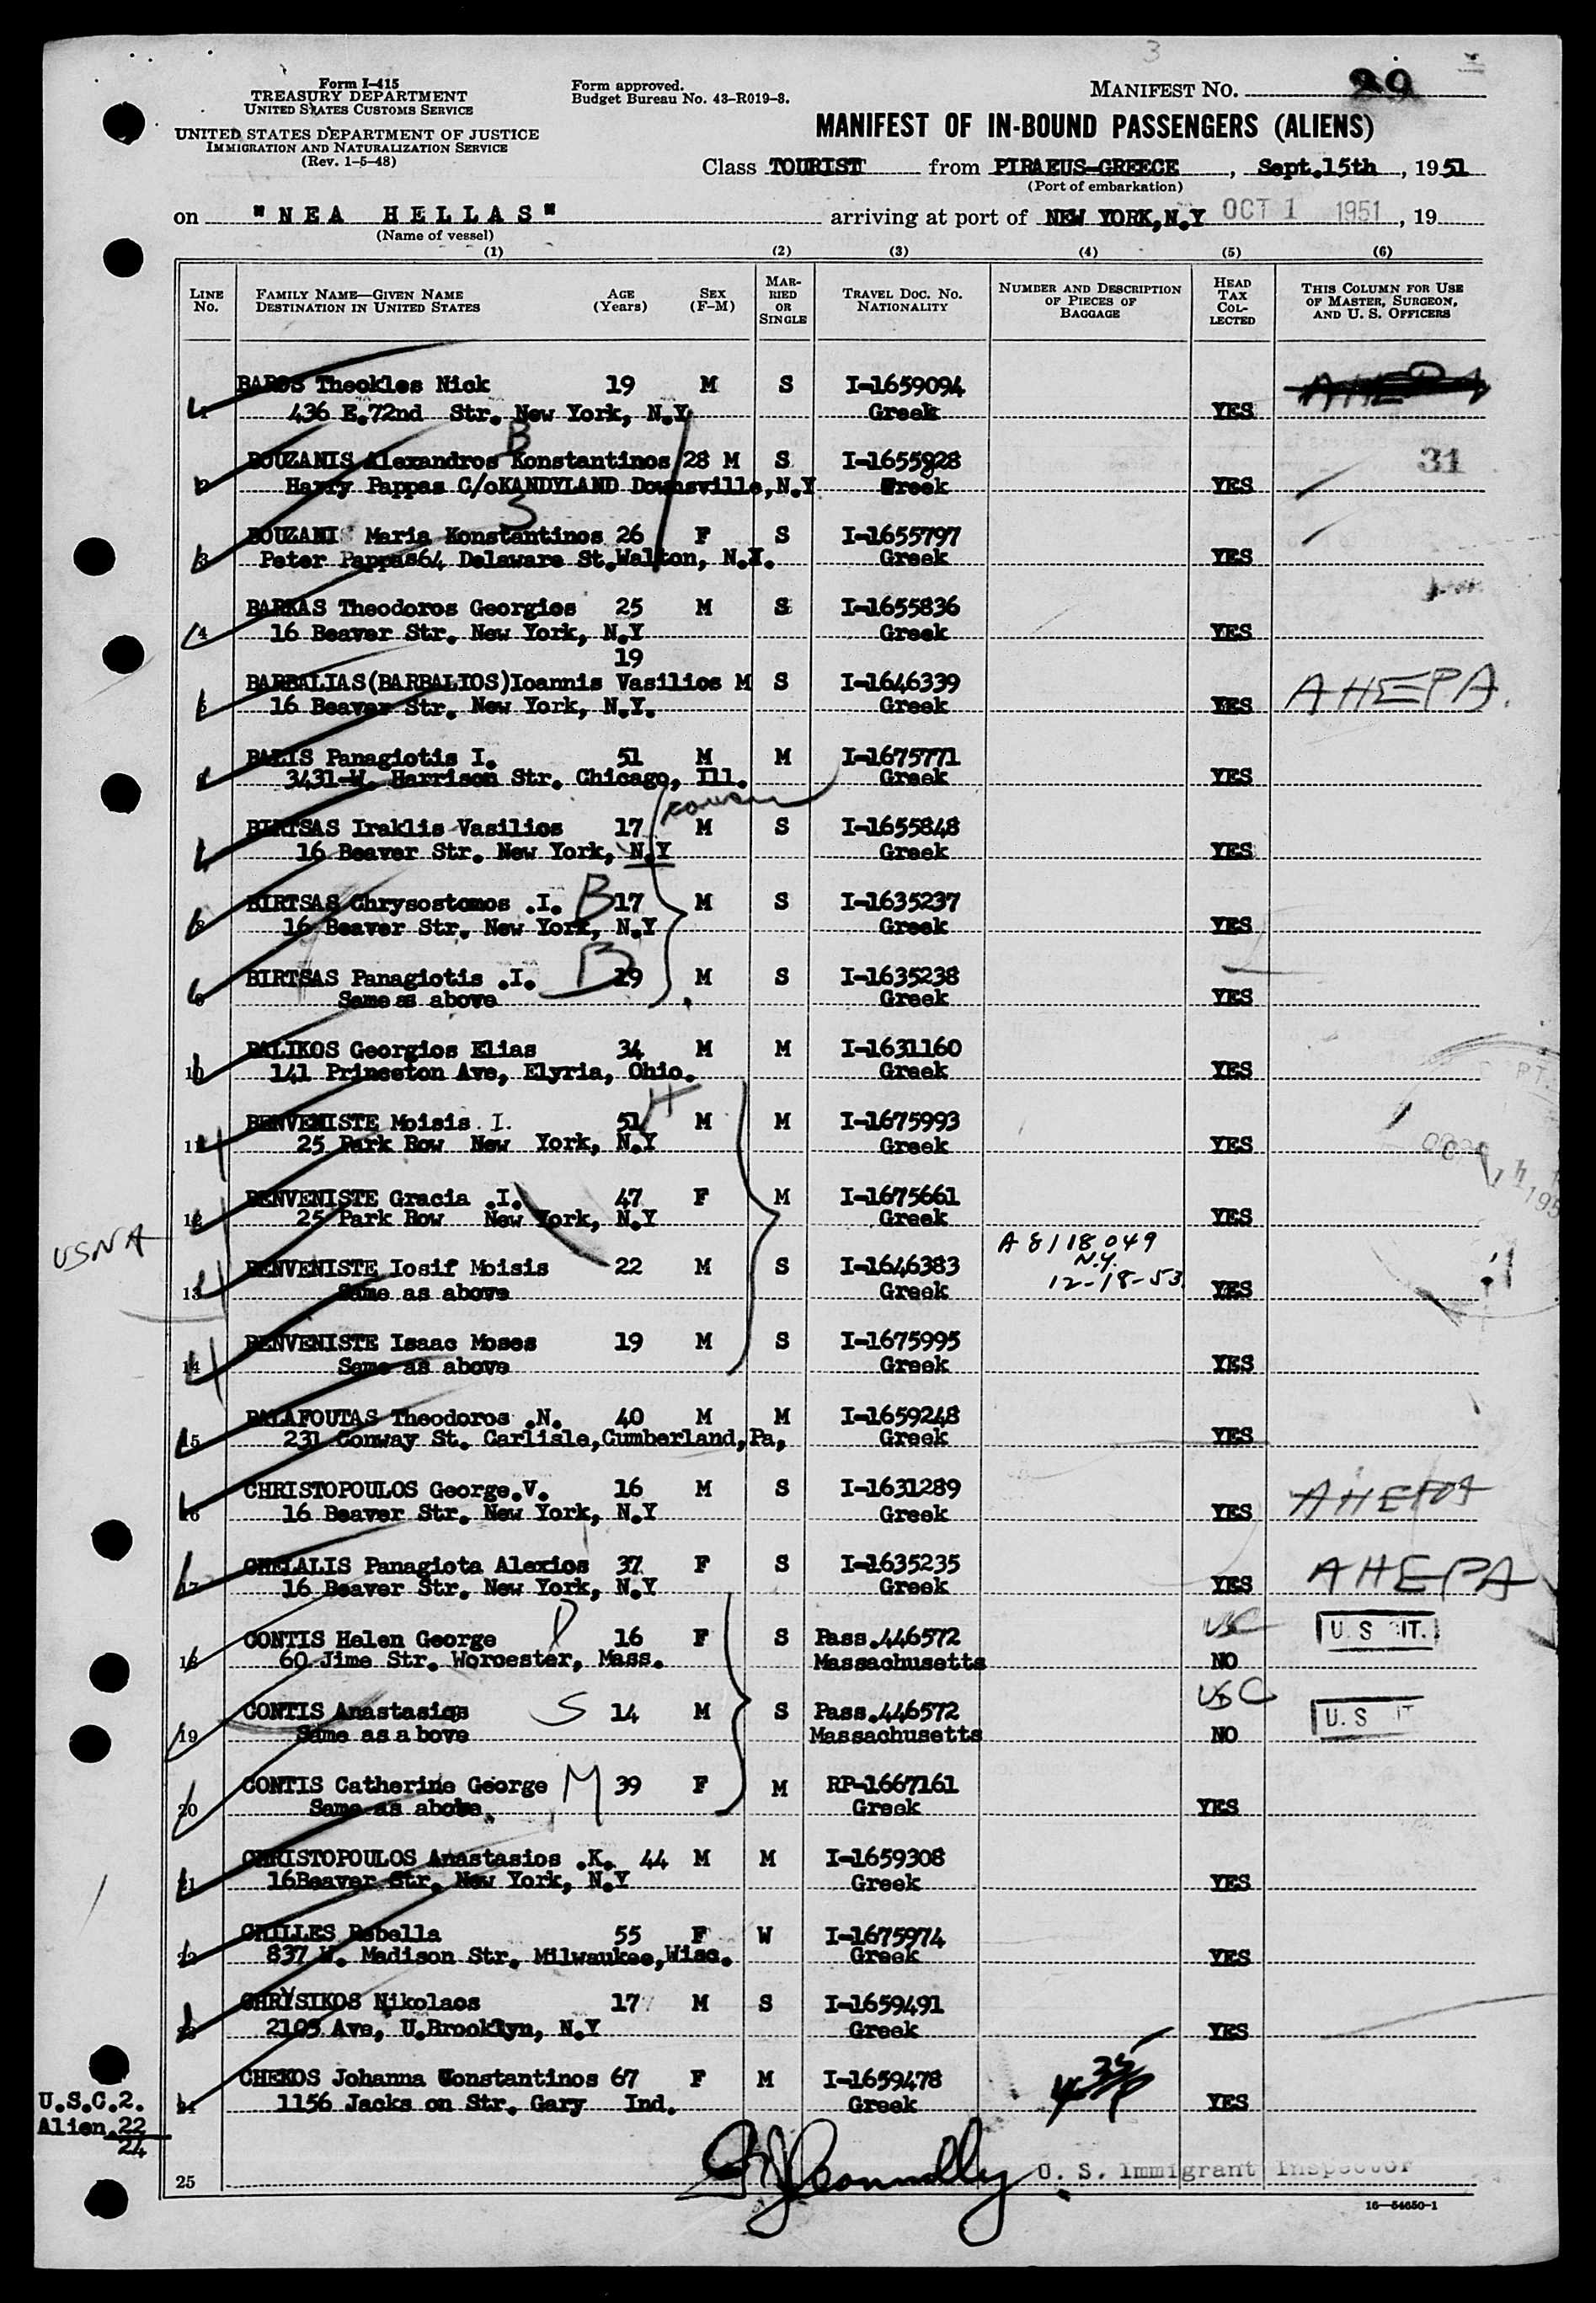 3
Form I-415
TREASURY DEPARTMENT
UNITED STATES CUSTOMS SERVICE
UNITED STATES DEPARTMENT OF JUSTICE
IMMIGRATION AND NATURALIZATION SERVICE
(Rev. 1-5-48)
Form approved.
Budget Bureau No. 43-R019-8.
MANIFEST NO. 29
MANIFEST OF IN-BOUND PASSENGERS (ALIENS)
Class TOURIST from PIRAEUS-GREECE, Sept.15th, 1951
(Port of embarkation)
on "NEA HELLAS" arriving at port of NEW YORK,N.Y OCT 1 1951, 19
(Name of vessel)
(1) (2) (3) (4) (5) (6)
LINE NO. FAMILY NAME—GIVEN NAME DESTINATION IN UNITED STATES AGE (YEARS) SEX (F-M) MARRIED OR SINGLE TRAVEL DOC. NO. NATIONALITY NUMBER AND DESCRIPTION OF PIECES OF BAGGAGE HEAD TAX COLLECTED THIS COLUMN FOR USE OF MASTER, SURGEON, AND U. S. OFFICERS
BAROS Theokles Nick 19 M S I-1659094 AHEPA
1 436 E.72nd Str. New York, N.Y Greek YES
B
BOUZANIS Alexandros Konstantinos 28 M S I-1655928 31
2 Harry Pappas C/oKANDYLAND Downsville,N.Y Greek YES
S
BOUZANIS Maria Konstantinos 26 F S I-1655797
3 Peter Pappas64 Delaware St.Walton, N.Y. Greek YES
BARKAS Theodoros Georgios 25 M S I-1655836
4 16 Beaver Str. New York, N.Y Greek YES
19
BARBALIAS(BARBALIOS)Ioannis Vasilios M S I-1646339
5 16 Beaver Str. New York, N.Y. Greek YES AHEPA.
BALIS Panagiotis I. 51 M M I-1675771
3431-W. Harrison Str. Chicago, Ill. Greek YES
cousin
BIRTSAS Iraklis Vasilios 17 M S I-1655848
16 Beaver Str. New York, N.Y Greek YES
BIRTSAS Chrysostomos .I. B 17 M S I-1635237
16 Beaver Str. New York, N.Y Greek YES
BIRTSAS Panagiotis .I. B 19 M S I-1635238
9 Same as above Greek YES
BALIKOS Georgios Elias 34 M M I-1631160
10 141 Princeton Ave, Elyria, Ohio. Greek YES
BENVENISTE Moisis I. 51 H M M I-1675993
11 25 Park Row New York, N.Y Greek YES
BENVENISTE Gracia .I. 47 F M I-1675661
12 25 Park Row New York, N.Y Greek YES
USNA
A 8118049
N.Y.
12-18-53
BENVENISTE Iosif Moisis 22 M S I-1646383
13 Same as above Greek YES
BENVENISTE Isaac Moses 19 M S I-1675995
14 Same as above Greek YES
BALAFOUTAS Theodoros .N. 40 M M I-1659248
15 231 Conway St. Carlisle,Cumberland,Pa, Greek YES
CHRISTOPOULOS George.V. 16 M S I-1631289
16 16 Beaver Str. New York, N.Y Greek YES AHEPA
CHELALIS Panagiota Alexios 37 F S I-1635235
17 16 Beaver Str. New York, N.Y Greek YES AHEPA
CONTIS Helen George D 16 F S Pass.446572 USC U.S. CIT.
18 60 Jime Str. Worcester, Mass. Massachusetts NO
CONTIS Anastasios S 14 M S Pass.446572 USC U.S. IT
19 Same as above Massachusetts NO
CONTIS Catherine George M 39 F M RP-1667161
20 Same as above. Greek YES
CHRISTOPOULOS Anastasios .K. 44 M M I-1659308
21 16Beaver Str. New York, N.Y Greek YES
CHILLES Rebella 55 F W I-1675974
22 837 W. Madison Str. Milwaukee,Wisc. Greek YES
CHRYSIKOS Nikolaos 17 M S I-1659491
23 2105 Ave, U.Brooklyn, N.Y Greek YES
CHEKOS Johanna Constantinos 67 F M I-1659478
24 1156 Jacks on Str. Gary Ind. Greek YES
U.S.C.2.
Alien.22
24
U. S. Immigrant Inspector
25
16—54650-1